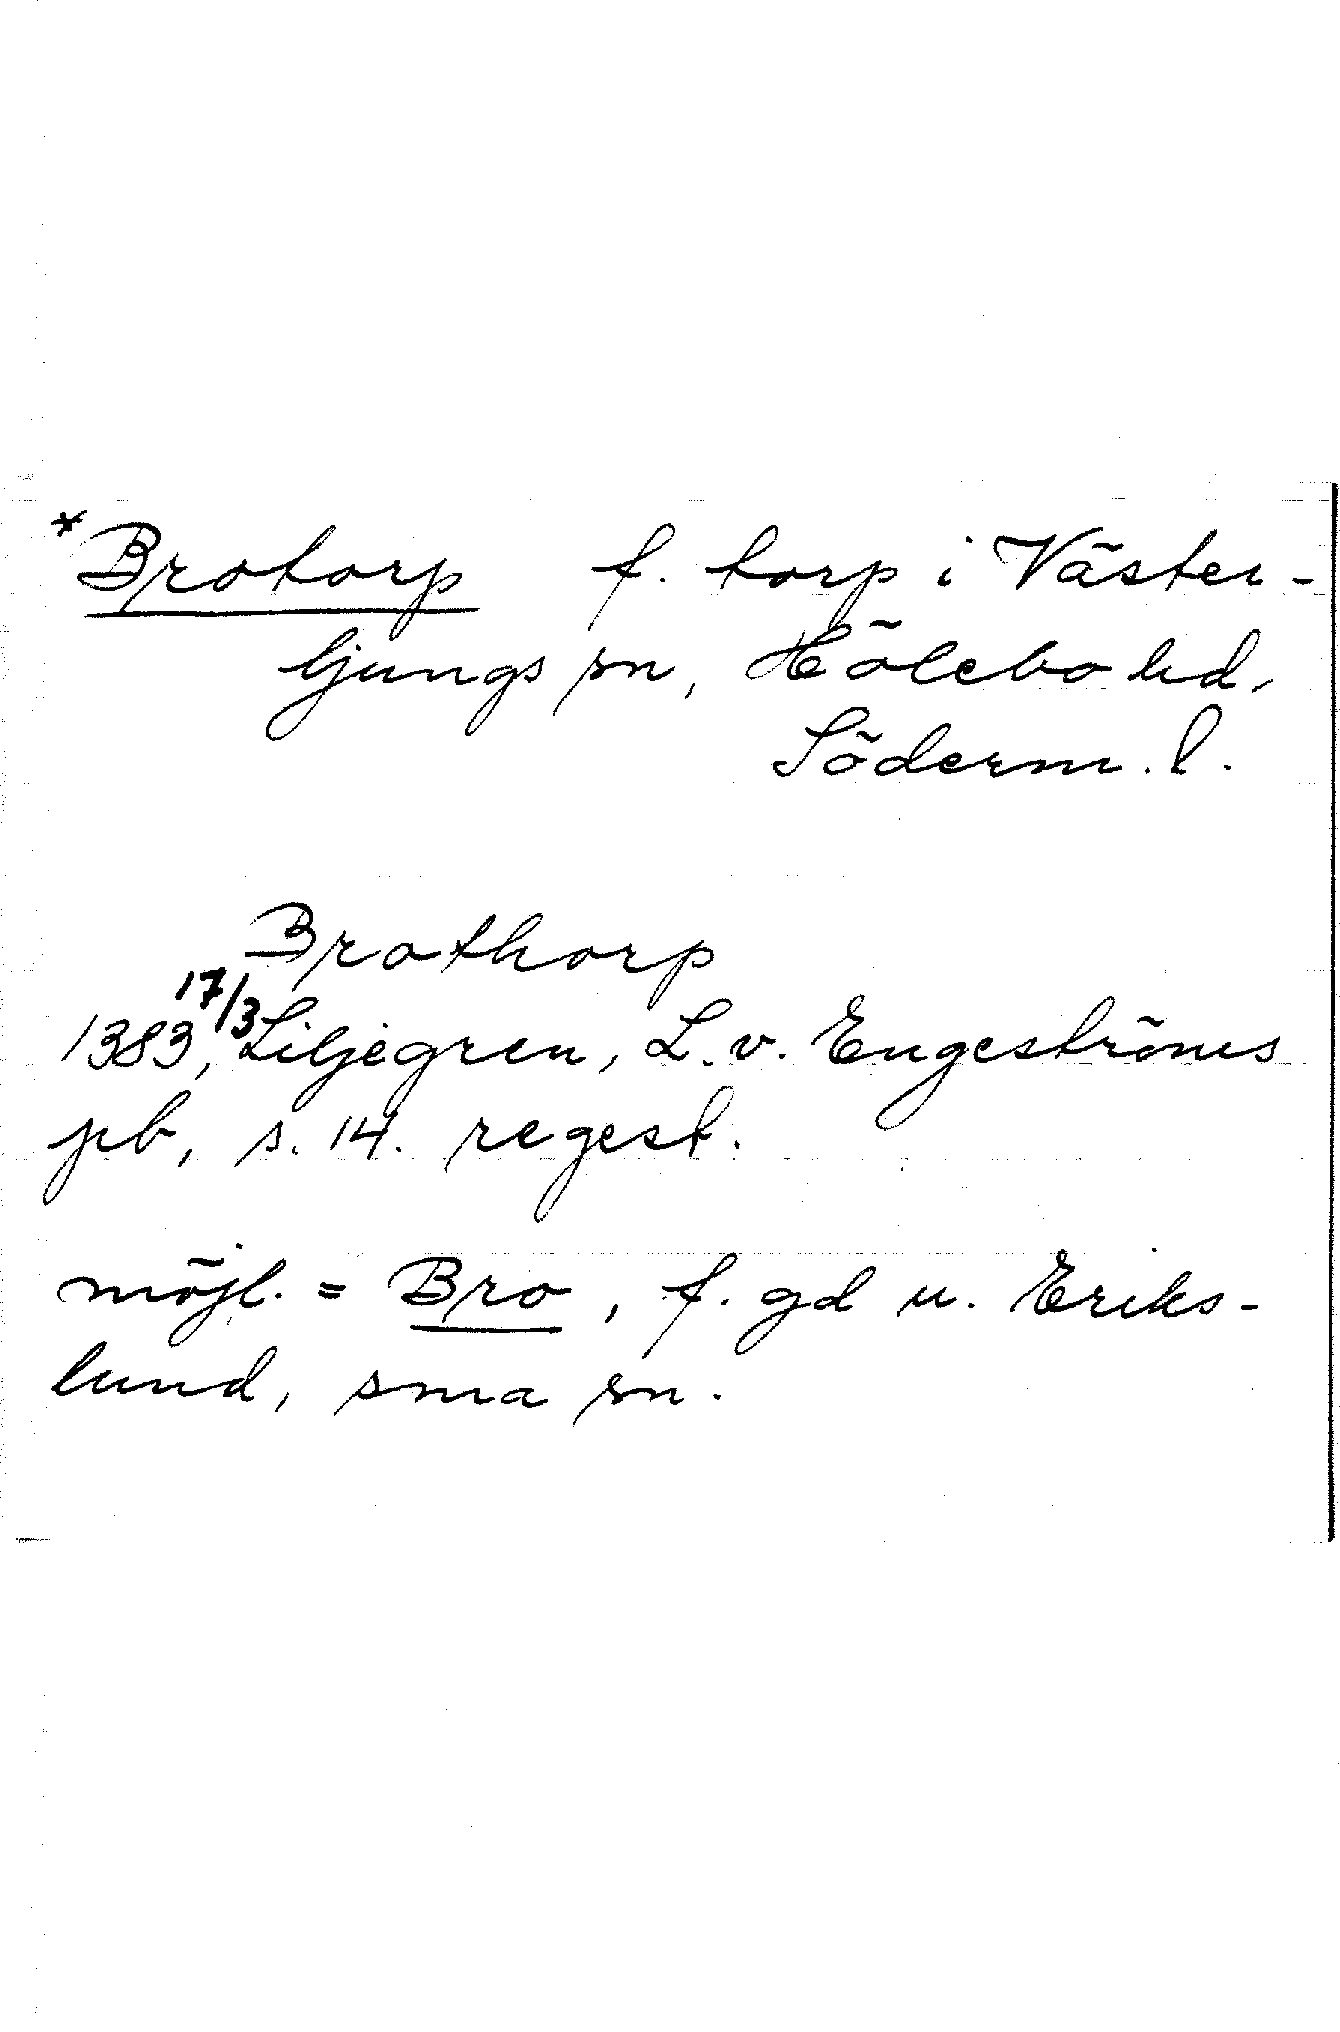 *Brotorp f. torp i Väster-
ljungs sn, Hölebo hd,
Söderm. l.
Brothorp
1383 17/3, Liljegren, L. v. Engeströms
pb, s. 14. regest.
möjl. = Bro, f. gd u. Eriks-
lund, sma sn.